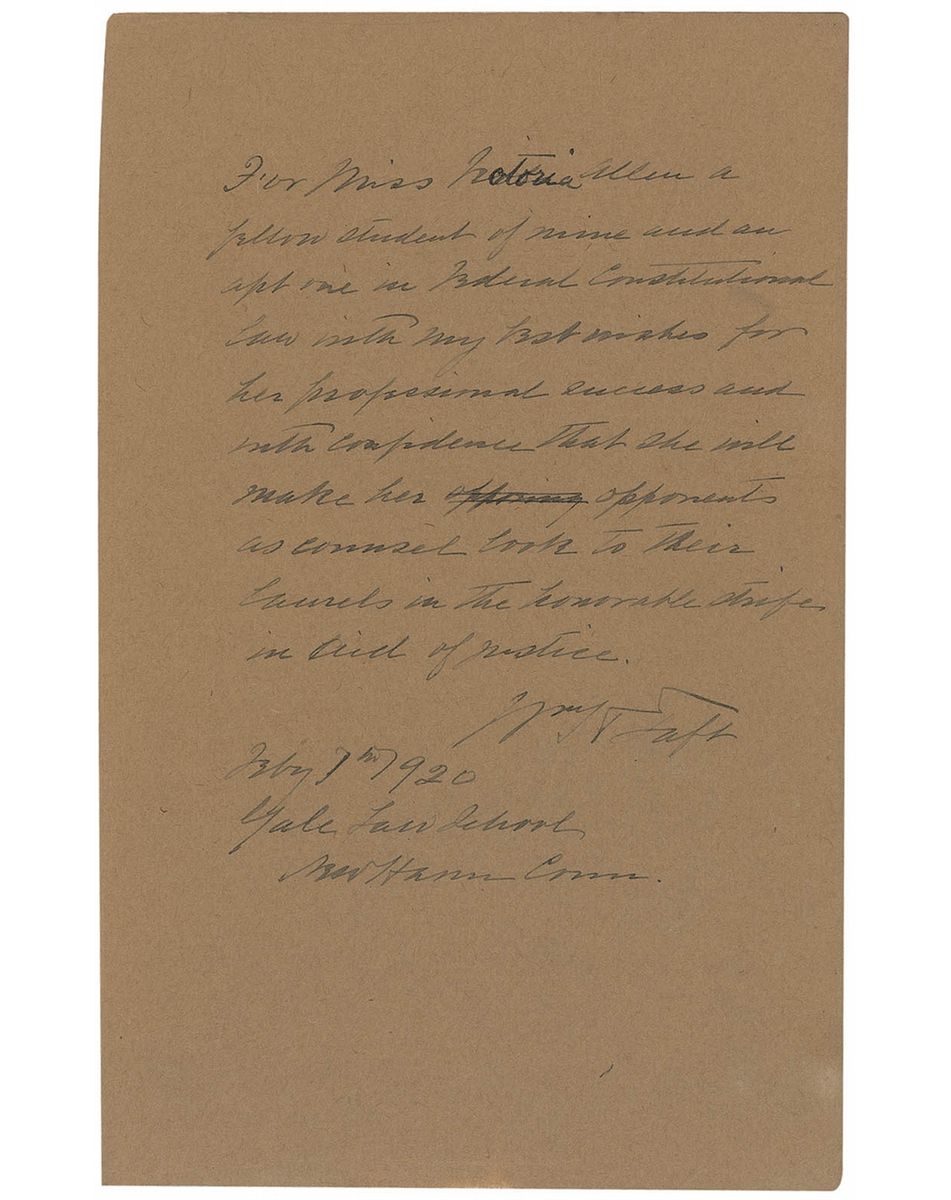 For Miss Victoria Allen a
fellow student of mine and an
apt one in Federal Constitutional
law with my best wishes for
her professional success and
with confidence that she will
make her opposing opponents
as counsel look to their
laurels in the honorable strife
in aid of justice.
Wm H Taft
Feby 7th 1920
Yale Law School
New Haven Conn.